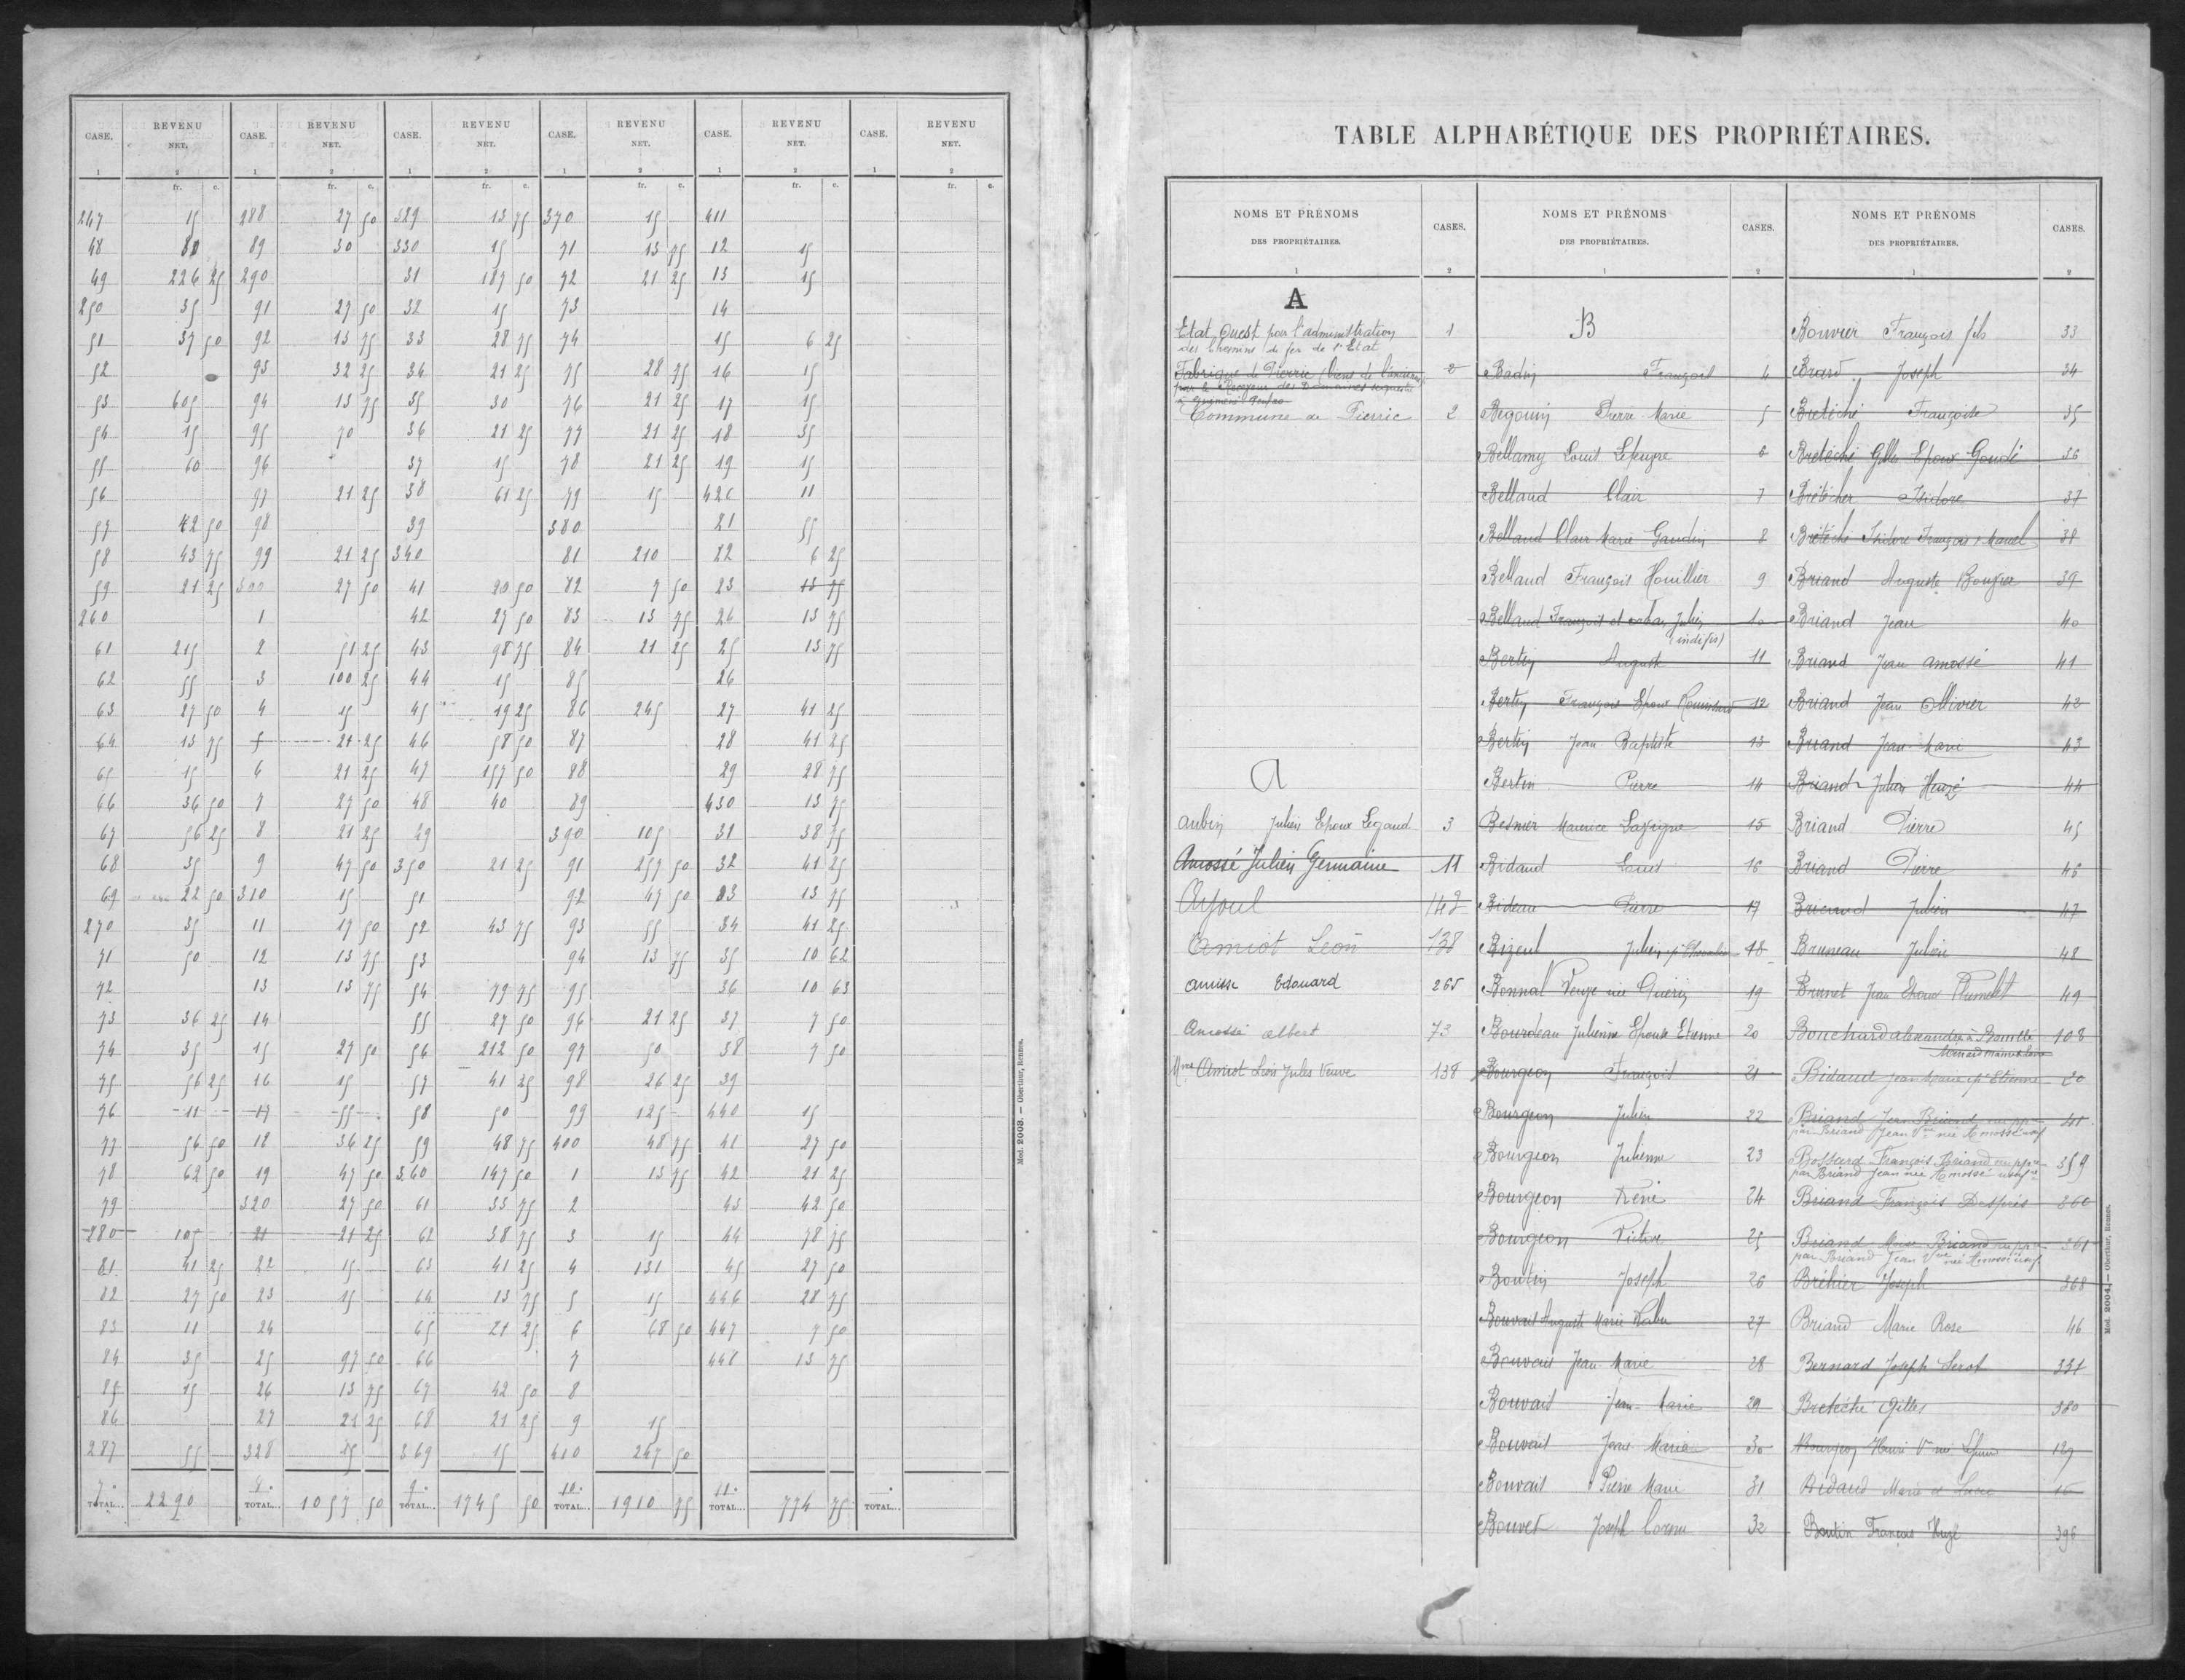 CASE. REVENU NET. CASE. REVENU NET. CASE. REVENU NET. CASE. REVENU NET. CASE. REVENU NET. CASE. REVENU NET.
1 2 1 2 1 2 1 2 1 2 1 2
fr. c. fr. c. fr. c. fr. c. fr. c. fr. c.
247 15 288 27 50 329 13 75 370 15 411
48 80 89 30 330 15 71 13 75 12 15
49 226 25 290 31 187 50 72 21 25 13 15
250 35 91 27 50 32 15 73 14
51 37 50 92 13 75 33 28 75 74 15 6 25
52 93 32 25 34 21 25 75 28 75 16 15
53 605 94 13 75 35 30 76 21 25 17 15
54 15 95 70 36 21 25 77 21 25 18 35
55 60 96 37 15 78 21 25 19 15
56 97 21 25 38 61 25 79 15 420 11
57 42 50 98 39 380 21 55
58 43 75 99 21 25 340 81 210 22 6 25
59 21 25 300 27 50 41 20 50 82 7 50 23 13 75
260 1 42 27 50 83 13 75 24 13 75
61 215 2 51 25 43 98 75 84 21 25 25 13 75
62 55 3 100 25 44 15 85 26
63 27 50 4 15 45 19 25 86 245 27 41 25
64 13 75 5 21 25 46 58 50 87 28 41 25
65 15 6 21 25 47 157 50 88 29 28 75
66 36 50 7 27 50 48 40 89 430 13 75
67 56 25 8 21 25 49 390 105 31 38 75
68 35 9 47 50 350 21 25 91 257 50 32 41 25
69 22 50 310 15 51 92 47 50 33 13 75
270 35 11 17 50 52 43 75 93 55 34 41 25
71 50 12 13 75 53 94 13 75 35 10 62
72 13 13 75 54 79 75 95 36 10 63
73 36 25 14 55 27 50 96 21 25 37 7 50
74 35 15 27 50 56 212 50 97 50 38 7 50
75 56 25 16 15 57 41 25 98 26 25 39
76 11 17 55 58 50 99 125 440 15
77 56 50 18 36 25 59 48 75 400 48 75 41 27 50
78 62 50 19 47 50 360 147 50 1 13 75 42 21 25
79 320 27 50 61 33 75 2 43 42 50
280 105 21 21 25 62 38 75 3 15 44 78 75
81 41 25 22 15 63 41 25 4 131 45 27 50
82 27 50 23 15 64 13 75 5 15 446 28 75
83 11 24 65 21 25 6 68 50 447 7 50
84 35 25 97 50 66 7 448 13 75
85 15 26 13 75 67 42 50 8
86 27 21 25 68 21 25 9 15
287 55 328 15 369 15 410 247 50
7° 8° 9° 10° 11°
TOTAL.. 2290 TOTAL... 1057 50 TOTAL... 1745 50 TOTAL... 1910 75 TOTAL... 774 75 TOTAL...
Mod. 2003. — Oberthur, Rennes.
TABLE ALPHABÉTIQUE DES PROPRIÉTAIRES.
NOMS ET PRÉNOMS DES PROPRIÉTAIRES. CASES.
1 2
A
Etat Ouest pour l'administration 1
des Chemins de fer de l'Etat
Fabrique de Pierric 2
Commune de Pierric 2
A
Aubin Julien Epoux Legaud 3
Amossé Julien Germaine 11
Amiot Léon 138
Edouard 265
Amossé Albert 73
Amiot Jules Veuve 138
NOMS ET PRÉNOMS DES PROPRIÉTAIRES. CASES.
1 2
B
Badin François 4
Begouin Pierre Marie 5
Bellamy Louis 6
Belland Clair 7
Belland Clair Marie Gaudin 8
Belland François Houillier 9
Belland François et Julien 10
(indivis)
Bertin Auguste 11
Bertin François Epoux 12
Bertin Jean Baptiste 13
Bertin Pierre 14
Besnier Maurice 15
Bidaud Louis 16
Bideau Pierre 17
Bizeul Julien 18
Bonnal Veuve née Guérin 19
Bourdeau Julienne Epouse Etienne 20
Bourgeon François 21
Bourgeon Julien 22
Bourgeon Julienne 23
Bourgeon René 24
Bourgeon Victor 25
Boutin Joseph 26
Bouvais Auguste Marie 27
Bouvais Jean Marie 28
Bouvais Jean-Marie 29
Bouvais Jean Marie 30
Bouvais Pierre Marie 31
Bouvet Joseph 32
NOMS ET PRÉNOMS DES PROPRIÉTAIRES. CASES.
1 2
Bouvier François fils 33
Brard Joseph 34
Bretéché Françoise 35
Bretéché Gilles Epoux Gaudé 36
Brétécher Isidore 37
Brétéché Isidore François 38
Briand Auguste Bouvier 39
Briand Jean 40
Briand Jean Amossé 41
Briand Jean Ollivier 42
Briand Jean-Marie 43
Briand Julien Heuzé 44
Briand Pierre 45
Briand Pierre 46
Briand Julien 47
Bruneau Julien 48
Brunet Jean Epoux 49
Bouchard Alexandre 108
Bidaud Jean Etienne 20
Briand Jean Briand 41
par Briand Jean Vve née Amossé
Bossard François Briand 359
par Briand Jean née Amossé
Briand François Després 360
Briand Briand 361
par Briand Jean Vve née Amossé
Bréhier Joseph 368
Briand Marie Rose 46
Bernard Joseph 331
Bretéché Gilles 380
Henri Vve née 129
Bidaud Marie
Boutin François 396
Mod. 2004. — Oberthur, Rennes.